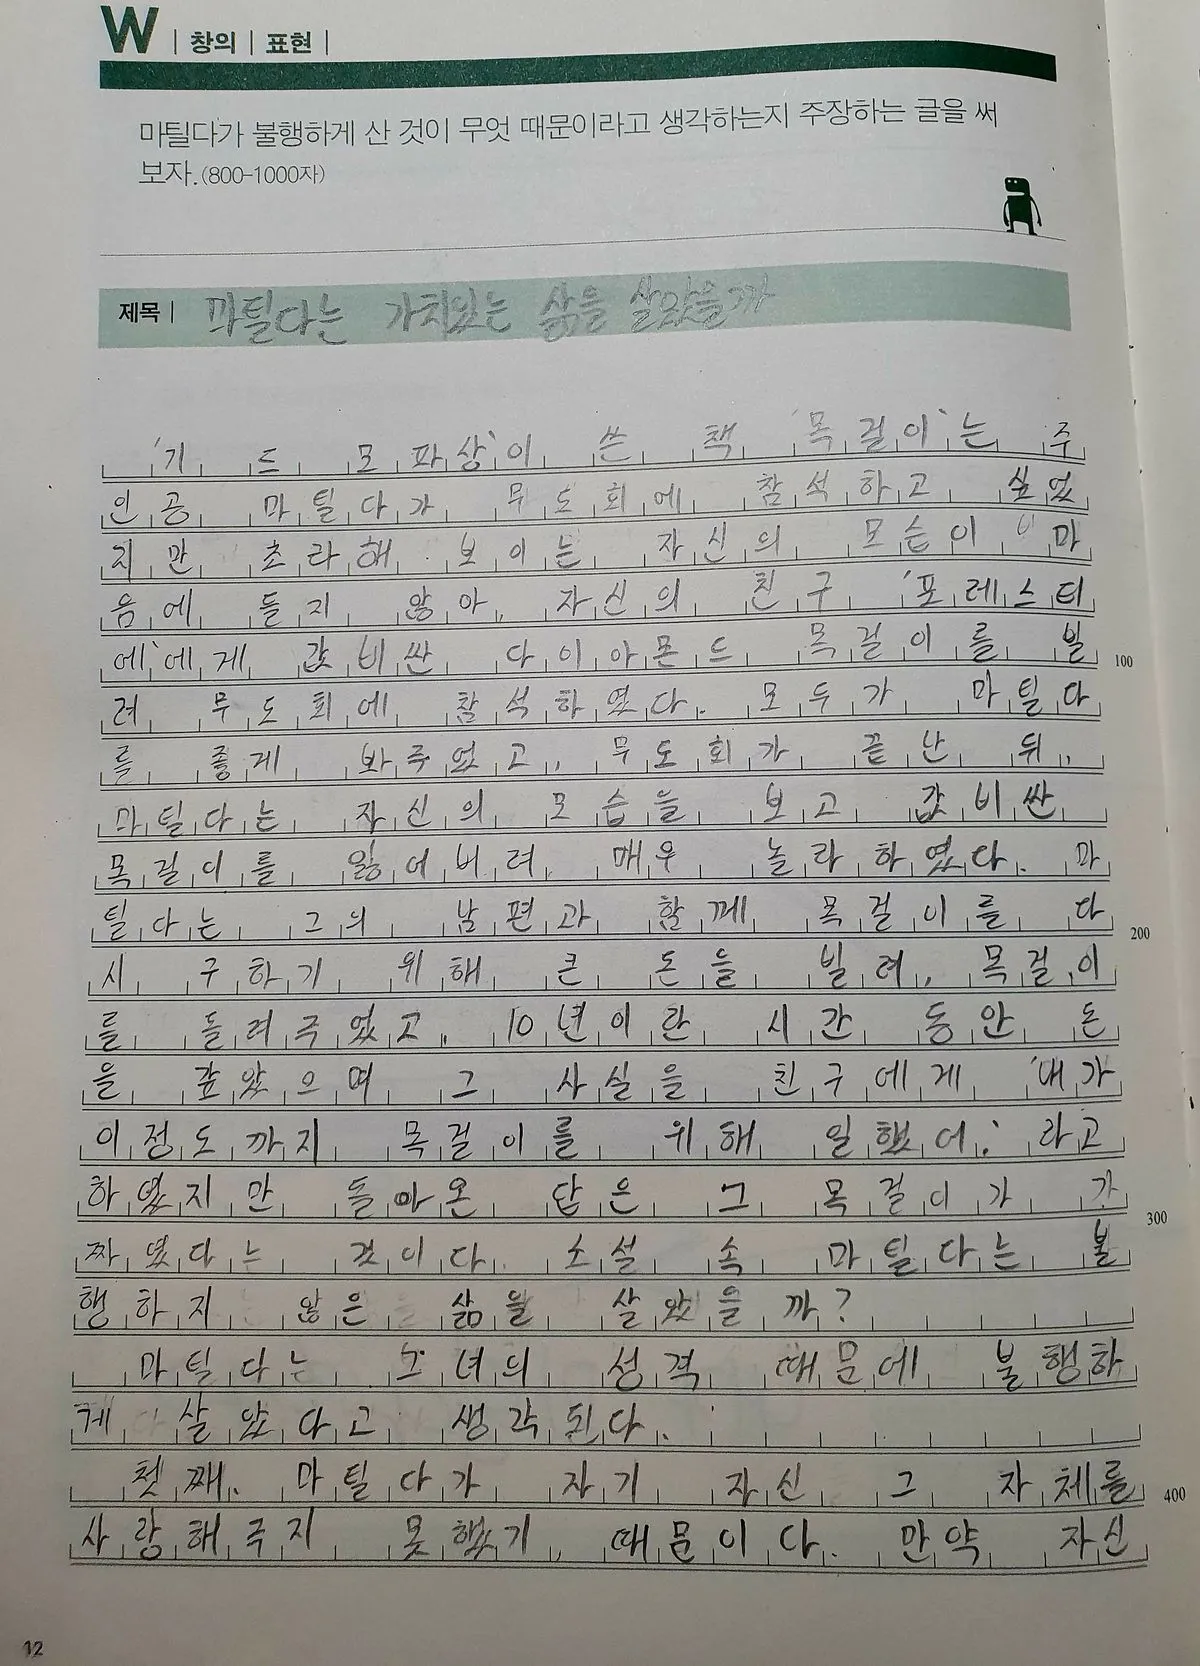 W | 창의 | 표현 |
마틸다가 불행하게 산 것이 무엇 때문이라고 생각하는지 주장하는 글을 써
보자.(800-1000자)
제목 | 마틸다는 가치있는 삶을 살았을까
'기 드 모파상'이 쓴 책 '목걸이'는 주
인공 마틸다가 무도회에 참석하고 싶었
지만 초라해 보이는 자신의 모습이 마
음에 들지 않아, 자신의 친구 '포레스티
에'에게 값비싼 다이아몬드 목걸이를 빌
100
려 무도회에 참석하였다. 모두가 마틸다
를 좋게 봐주었고, 무도회가 끝난 뒤,
마틸다는 자신의 모습을 보고 값비싼
목걸이를 잃어버려 매우 놀라하였다. 마
틸다는 그의 남편과 함께 목걸이를 다
200
시 구하기 위해 큰 돈을 빌려, 목걸이
를 돌려주었고, 10년이란 시간 동안 돈
을 갚았으며 그 사실을 친구에게 '내가
이정도까지 목걸이를 위해 일했어.' 라고
하였지만 돌아온 답은 그 목걸이가 가
300
짜였다는 것이다. 소설 속 마틸다는 불
행하지 않은 삶을 살았을까?
마틸다는 그녀의 성격 때문에 불행하
게 살았다고 생각된다.
첫째. 마틸다가 자기 자신 그 자체를
400
사랑해주지 못했기 때문이다. 만약 자신
12